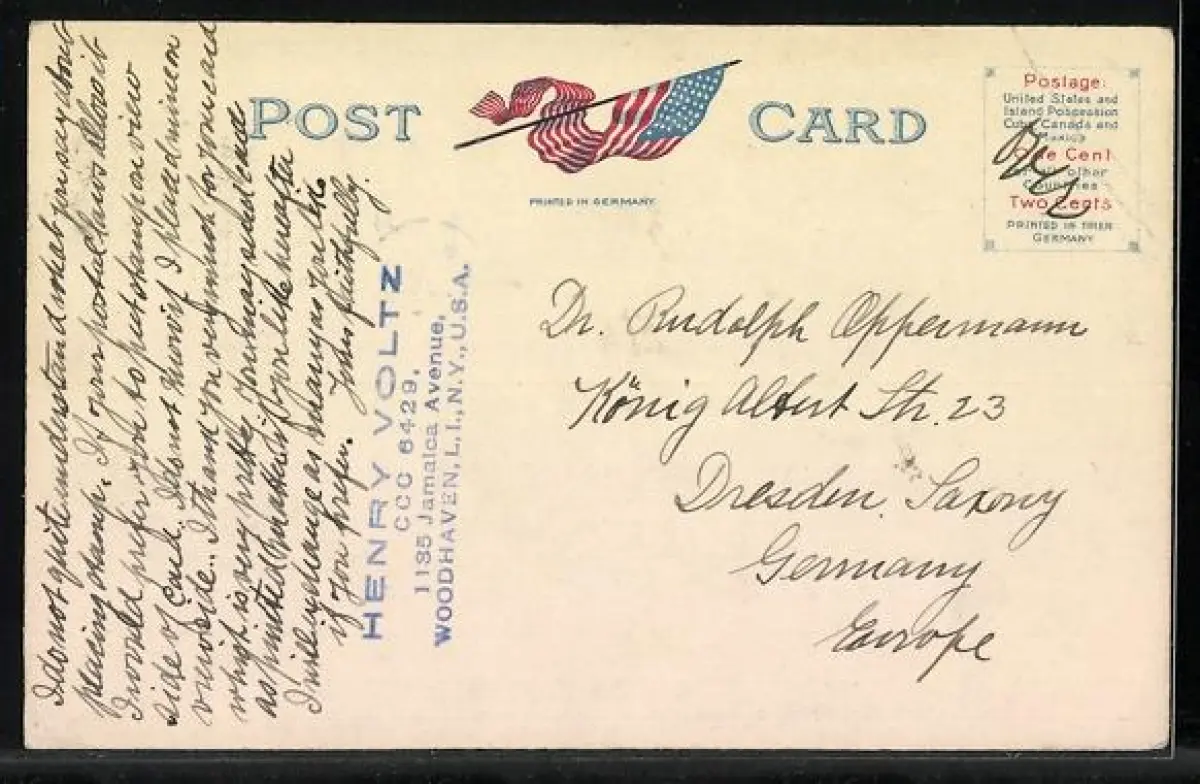 POST CARD
PRINTED IN GERMANY
Postage:
United States and
Island Possession
Cuba, Canada and
Mexico
One Cent
other
Countries
Two Cents
PRINTED IN
GERMANY
Dr. Rudolph Oppermann
König Albert Str. 23
Dresden, Saxony
Germany
Europe
I do not quite understand what you say about
placing stamp. If your postal laws allow it
I would prefer you to put stamp on view
side of card. I do not know if I placed mine on
view side.. I thank you very much for your card
which is very pretty. You may send cards
as printed on attached if you like hereafter
I will exchange as many as you like
if you prefer. Yours faithfully.
HENRY VOLTZ
CCC 6429,
1135 Jamaica Avenue,
WOODHAVEN, L.I., N.Y., U.S.A.